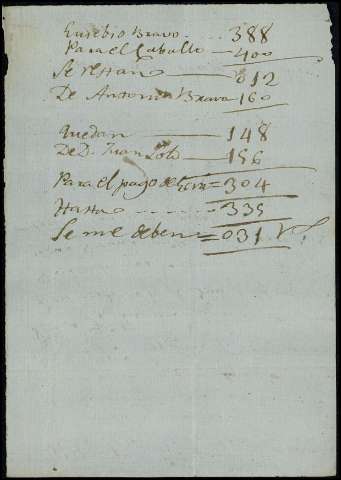 Eusebio Bravo. 388
Para el Caballo 400
Se restan 012
De Antonia Bravo 160
Quedan 148
De Dn. Juan 156
Para el pago de = 304
Hasta 335
Se me deben = 031